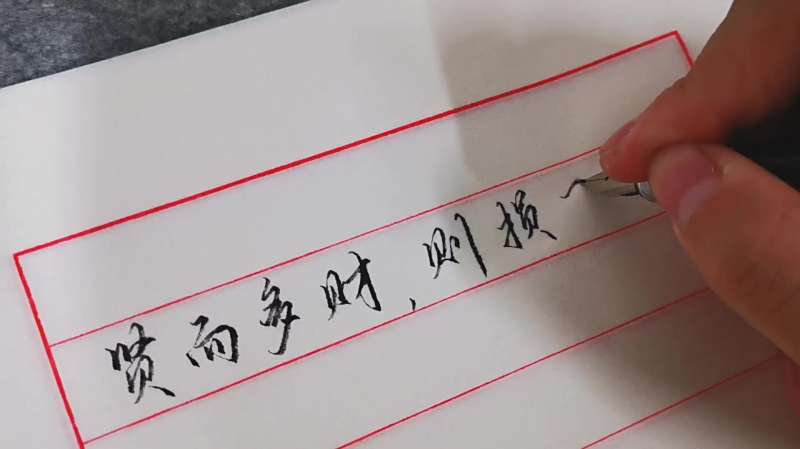 贤而多财，则损